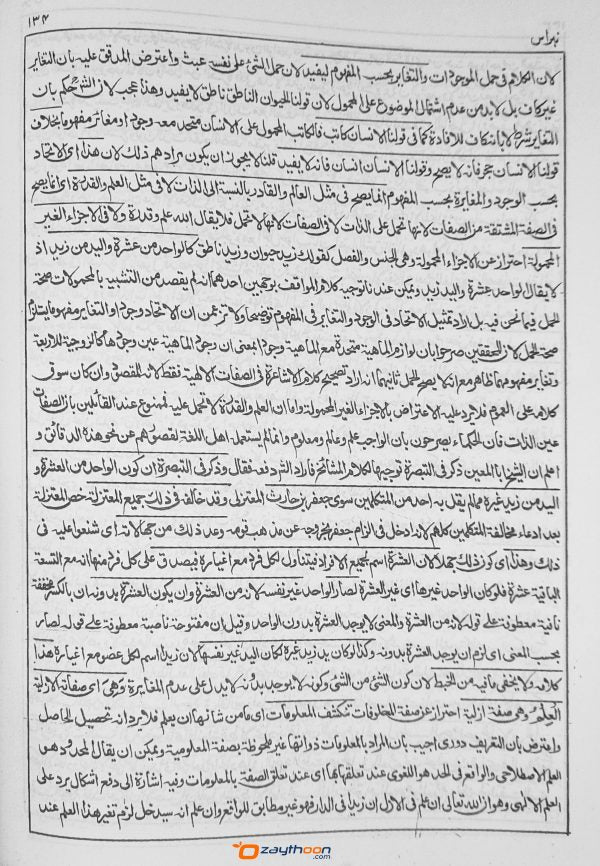 نبراس ۱۳۴
لان الكلام فى حمل الموجودات والتغاير بحسب المفهوم ليفيد لان حمل الشئ على نفسه عبث واعترض المدقق عليه بان التغاير
غير كاف بل لابد من عدم اشتمال الموضوع على المحمول لان قولنا الحيوان الناطق ناطق لا يفيد وهذا عجب لان الشرح حكم بان
التغاير شرط لا بانه كاف للافادة كما فى قولنا الانسان كاتب فالكاتب المحمول على الانسان متحد معه وجودا ومغاير مفهوما بخلاف
قولنا الانسان حجر فانه لا يصح وقولنا الانسان انسان فانه لا يفيد قلنا لا يجوز ان يكون مرادهم ذلك لان هذا اى الاتحاد
بحسب الوجود والمغايرة بحسب المفهوم انما يصح فى مثل العالم والقادر بالنسبة الى الذات لا فى مثل العلم والقدرة اى انما يصح
فى الصفة المشتقة من الصفات لانها تحمل على الذات لا فى الصفات لانها لا تحمل فلا يقال الله علم وقدرة ولا فى الاجزاء الغير
المحمولة احتراز عن الاجزاء المحمولة وهى الجنس والفصل كقولك زيد حيوان وزيد ناطق كالواحد من عشرة واليد من زيد اذ
لا يقال الواحد عشرة واليد زيد ويمكن عندنا توجيه كلام المواقف بوجهين احدهما انه لم يقصد من التشبيه بالمحمولات صحة
الحمل فيما نحن فيه بل اراد تمثيل الاتحاد فى الوجود والتغاير فى المفهوم توضيحا ولا تزعمن ان الاتحاد وجودا والتغاير مفهوما يستلزم
صحة الحمل لان المحققين صرحوا بان لوازم الماهية متحدة مع الماهية وجودا بمعنى ان وجود الماهية عين وجودها كالزوجية للاربعة
وتغاير مفهومهما ظاهر مع انه لا يصح الحمل ثانيهما انه اراد تصحيح كلام الاشاعرة فى الصفات الالهية فقط لانه المقصود وان كان سوق
كلامه على العموم فلا يرد عليه الاعتراض بالاجزاء الغير المحمولة واما ان العلم والقدرة لا تحمل عليه فممنوع عند القائلين بان الصفات
عين الذات فان الحكماء يصرحون بان الواجب علم وعالم ومعلوم وانما لم يستعمله اهل اللغة لقصورهم عن نحو هذه الدقائق و
اعلم ان الشيخ ابا المعين ذكر فى التبصرة توجيها لكلام المشائخ فاراد الشارح دفعه فقال وذكر فى التبصرة ان كون الواحد من العشرة و
اليد من زيد غيره مما لم يقل به احد من المتكلمين سوى جعفر بن حارث المعتزلى وقد خالفه فى ذلك جميع المعتزلة خص المعتزلة
بعد ادعاء مخالفة المتكلمين كلهم لانه ادخل فى الزام جعفر بخروجه عن مذهب قومه وعد ذلك من جهالاته اى شنعوا عليه فى
ذلك وهذا اى كون ذلك جهلا لان العشرة اسم بجميع الافراد فيتناول لكل فرد مع اغياره فيصدق على كل فرد منها انه مع التسعة
الباقية عشرة فلو كان الواحد غيرها اى غير العشرة لصار الواحد غير نفسه لانه من العشرة وان يكون العشرة بدونه ان بالكسر مخففة
نافية معطوفة على قوله لانه من العشرة والمعنى لا يوجد العشرة بدون الواحد وقيل ان مفتوحة ناصبة معطوفة على قوله لصار
بحسب المعنى اى لزم ان يوجد العشرة بدونه وكذا لو كان يد زيد غيره لكان اليد غير نفسها لان زيدا اسم لكل عضو مع اغياره هذا
كلامه ولا يخفى ما فيه من الخبط لان كون الشئ من الشئ وكونه لا يوجد بدونه لا يدل على عدم المغايرة وهى اى صفاته الازلية
العلم وهى صفة ازلية احتراز عن صفة المخلوقات تنكشف المعلومات اى ما من شانها ان يعلم فلا يرد انه تحصيل الحاصل
واعترض بان التعريف دورى اجيب بان المراد بالمعلومات ذواتها غير ملحوظة بصفة المعلومية ويمكن ان يقال المحدود هو
العلم الاصطلاحى والواقع فى الحد هو اللغوى عند تعلقها بها اى عند تعلق الصفة بالمعلومات وفيه اشارة الى دفع اشكال يرد على
العلم الالهى وهو ان الله تعالى ان علم فى الازل ان زيدا فى الدار فهو غير مطابق للواقع وان علم انه سيدخل لزم تغير هذا العلم عند
zaythoon.com